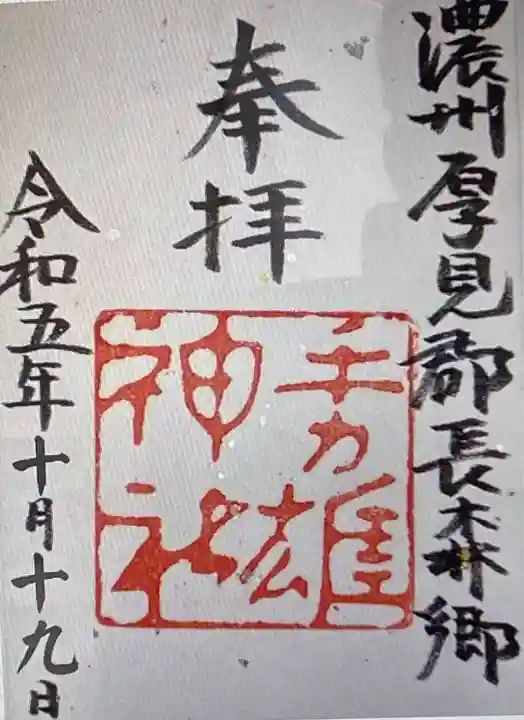 濃州厚見郡長森郷
奉拝
手力雄
神社
令和五年十月十九日